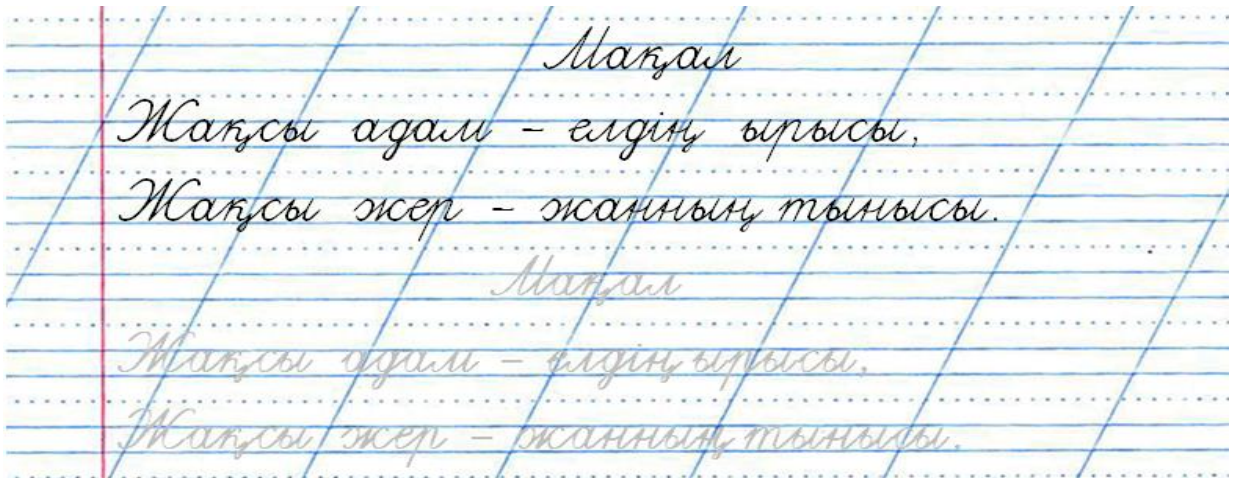 Мақал
Жақсы адам – елдің ырысы,
Жақсы жер – жанның тынысы.
Мақал
Жақсы адам – елдің ырысы,
Жақсы жер – жанның тынысы.